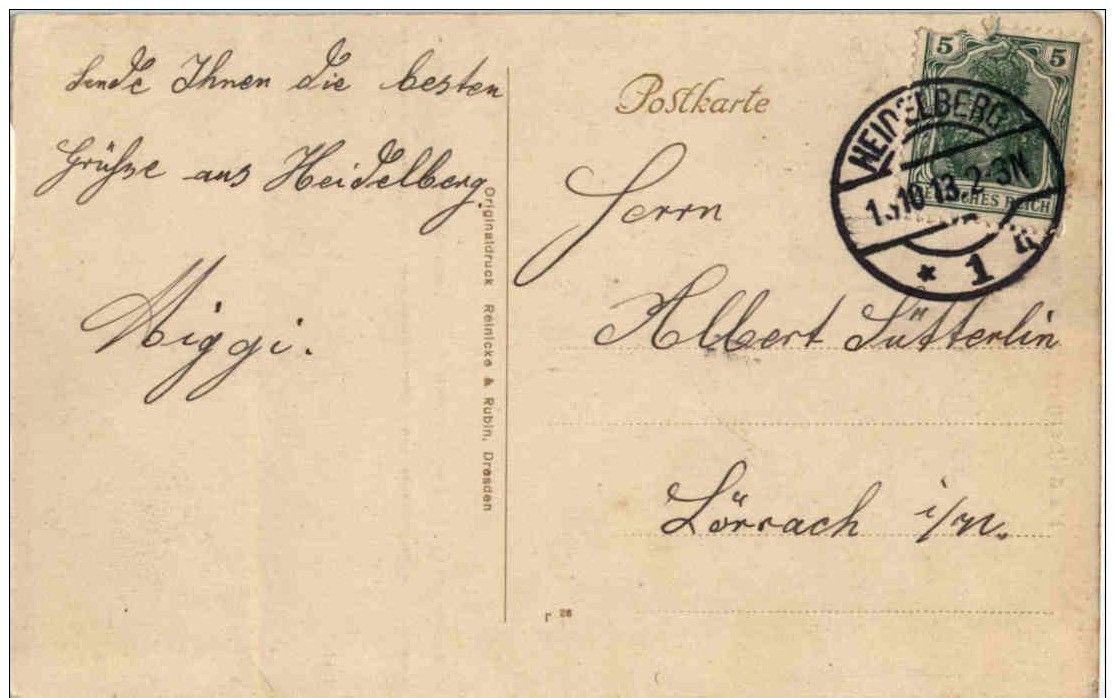 sende Ihnen die besten
Grühse aus Heidelberg.
Miggi.
Originaldruck Reinicke & Rubin, Dresden
26
Postkarte
5 5
DEUTSCHES REICH
HEIDELBERG
10.13.2-3N
* 1
Herrn
Albert Sütterlin
Lörrach